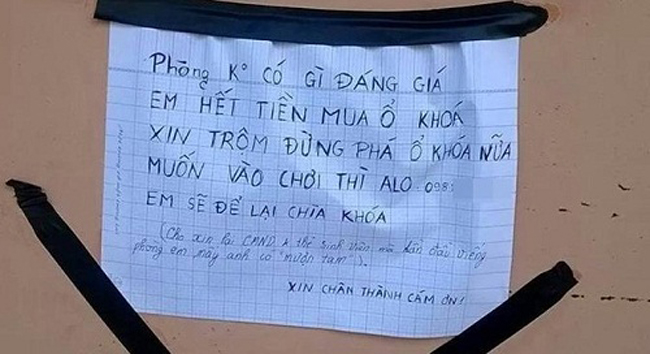 Phòng K° CÓ GÌ ĐÁNG GIÁ
EM HẾT TIỀN MUA Ổ KHOÁ
XIN TRỘM ĐỪNG PHÁ Ổ KHÓA NỮA
MUỐN VÀO CHƠI THÌ ALO 098
EM SẼ ĐỂ LẠI CHÌA KHÓA
(Cho xin lại CMND & thẻ sinh viên, mà lần đầu viếng
phòng em mấy anh có "mượn tạm").
XIN CHÂN THÀNH CÁM ƠN!